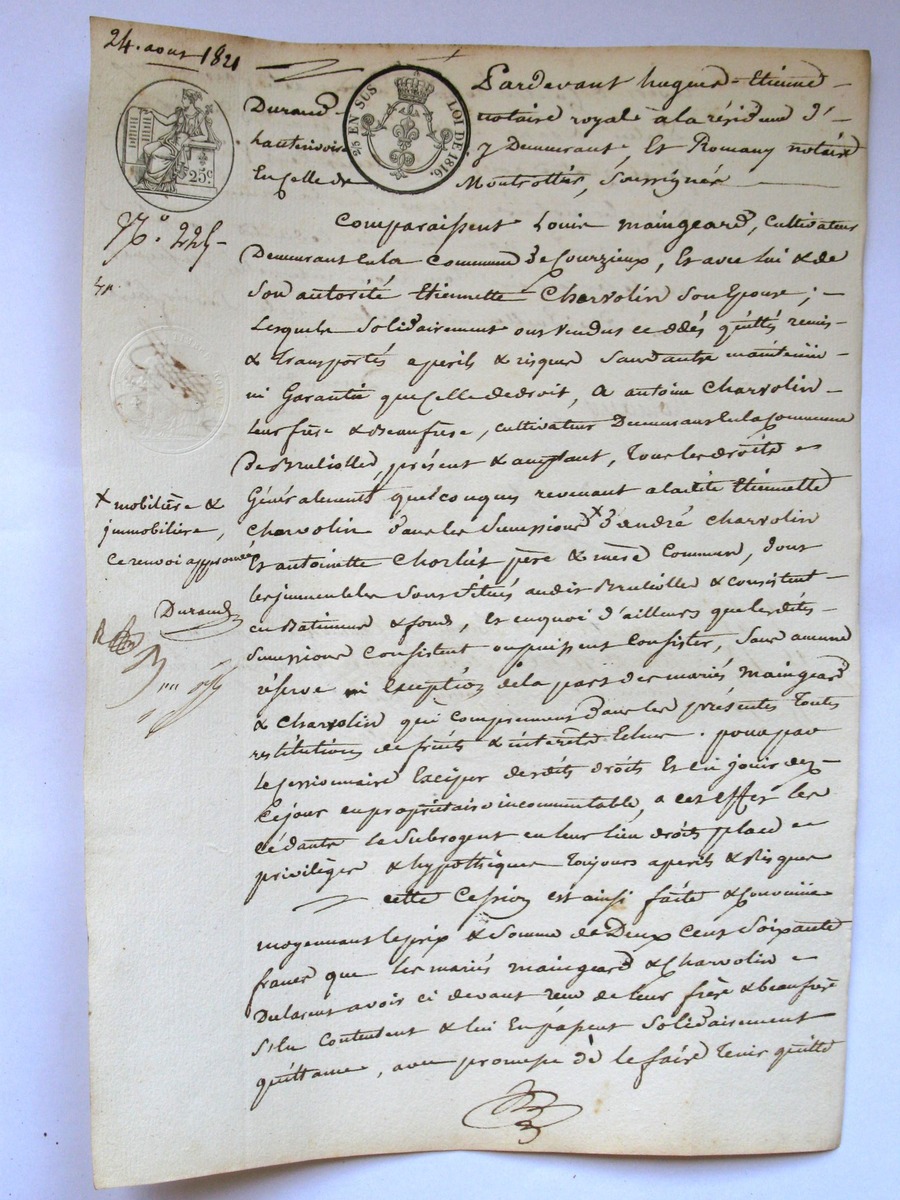 24. aout 1821
Pardevant hugues-Etienne
Durand notaire royal à la résidence d'
hauterivoire y Demeurant, Et Romany notaire
En celle de Montrottier, soussignés
2/5 EN SUS
LOI DE 1816.
25c
N.º 225
Comparaissent Louis maingeard, cultivateur
Demeurant En la commune de Courzieux, Et avec lui & de
son autorité Etiennette Charvolin son Epouse ;
Lesquels solidairement ont vendus cédés quittés remis
& transportés a perils & risques sans autre maintenue
ni Garantie que Celle de droit, A antoine Charvolin
leur frère & Beaufrère, cultivateur Demeurant En la Commune
de Brullioles, présent & acceptant, Tous les droits
Généralement quelconques revenant a ladite Etiennette
Charvolin dans les successions x d'andré Charvolin
Et antoinette père & mère Communs, dont
les immeubles sont situés audit Brullioles & consistent
en Batiments & fonds, Et en quoi d'ailleurs que lesdites
successions Consistent ou puissent Consister, sans aucune
réserve ni Exception de la part des mariés maingeard
& Charvolin qui comprennent dans les présentes toutes
restitutions de fruits & intérêts Echus. pour par
le cessionnaire Exciper desdits droits Et en jouir dez
Cejour en propriétaire incommutable, a cet effet les
cédants le subrogent en leur lieu droits place
privilèges & hypothèques toujours a perils & risques
cette Cession est ainsi faite & Convenue
moyennant le prix & somme de Deux Cent soixante
francs que les mariés maingeard & Charvolin
Declarent avoir ci devant reçu de leur frère & beaufrère
s'En Contentent & lui En passent solidairement
quittance, avec promesse de le faire tenir quitte
x mobilière &
immobilière,
Ce renvoi approuvé
Durand